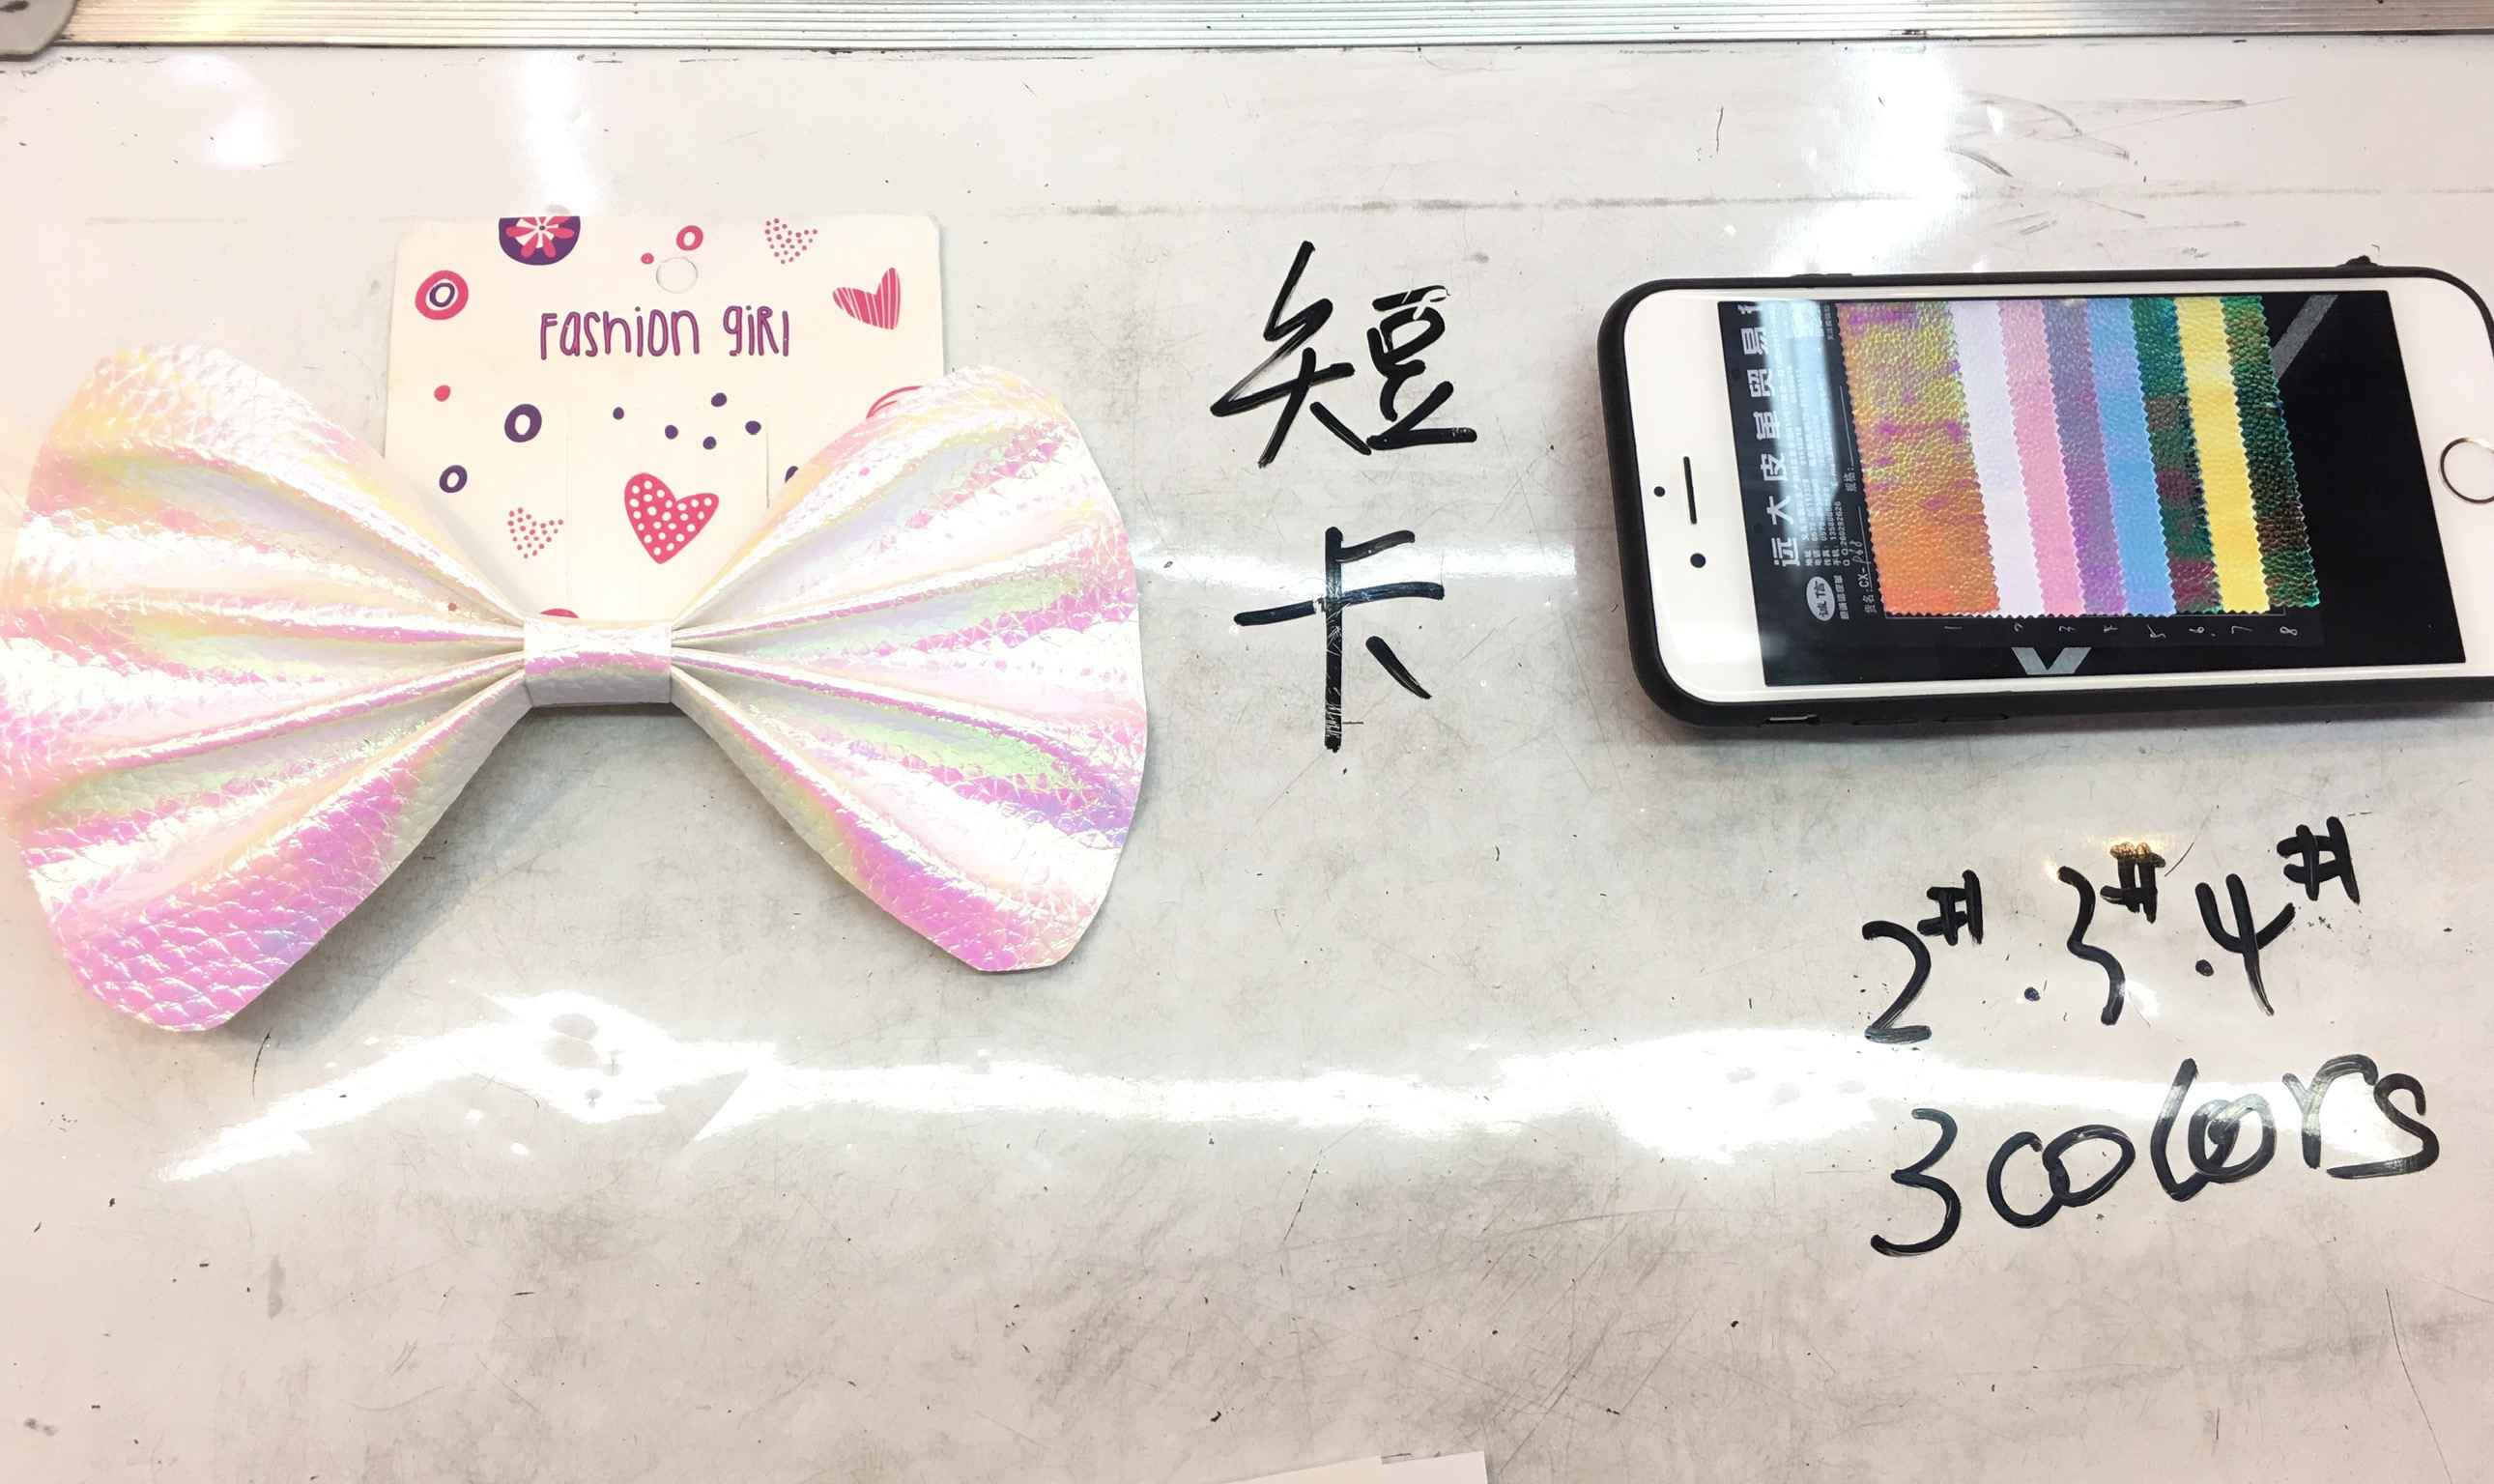 Fashion giRl
短
卡
远大皮革贸易
诚信
货名:CX-
规格:
1 2 3 4 5 6. 7 8
2#.3#.4#
3 colors